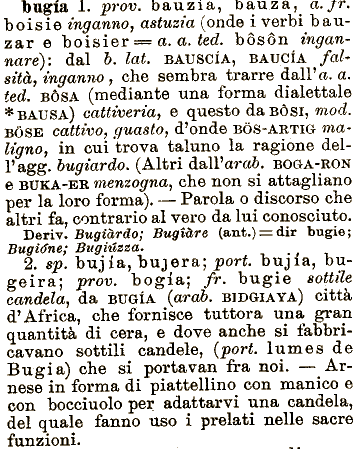 bugía 1. prov. bauzia, bauza, a. fr.
boisie inganno, astuzia (onde i verbi bau-
zar e boisier = a. a. ted. bôsôn ingan-
nare): dal b. lat. BAUSCÍA, BAUCÍA fal-
sità, inganno, che sembra trarre dall'a. a.
ted. BÔSA (mediante una forma dialettale
*BAUSA) cattiveria, e questo da BÔSI, mod.
BÖSE cattivo, guasto, d'onde BÖS-ARTIG ma-
ligno, in cui trova taluno la ragione del-
l'agg. bugiardo. (Altri dall'arab. BOGA-RON
e BUKA-ER menzogna, che non si attagliano
per la loro forma). — Parola o discorso che
altri fa, contrario al vero da lui conosciuto.
Deriv. Bugiàrdo; Bugiàre (ant.) = dir bugie;
Bugióne; Bugiúzza.
2. sp. bujía, bujera; port. bujía, bu-
geira; prov. bogía; fr. bugie sottile
candela, da BUGÍA (arab. BIDGIAYA) città
d'Africa, che fornisce tuttora una gran
quantità di cera, e dove anche si fabbri-
cavano sottili candele, (port. lumes de
Bugia) che si portavan fra noi. — Ar-
nese in forma di piattellino con manico e
con bocciuolo per adattarvi una candela,
del quale fanno uso i prelati nelle sacre
funzioni.